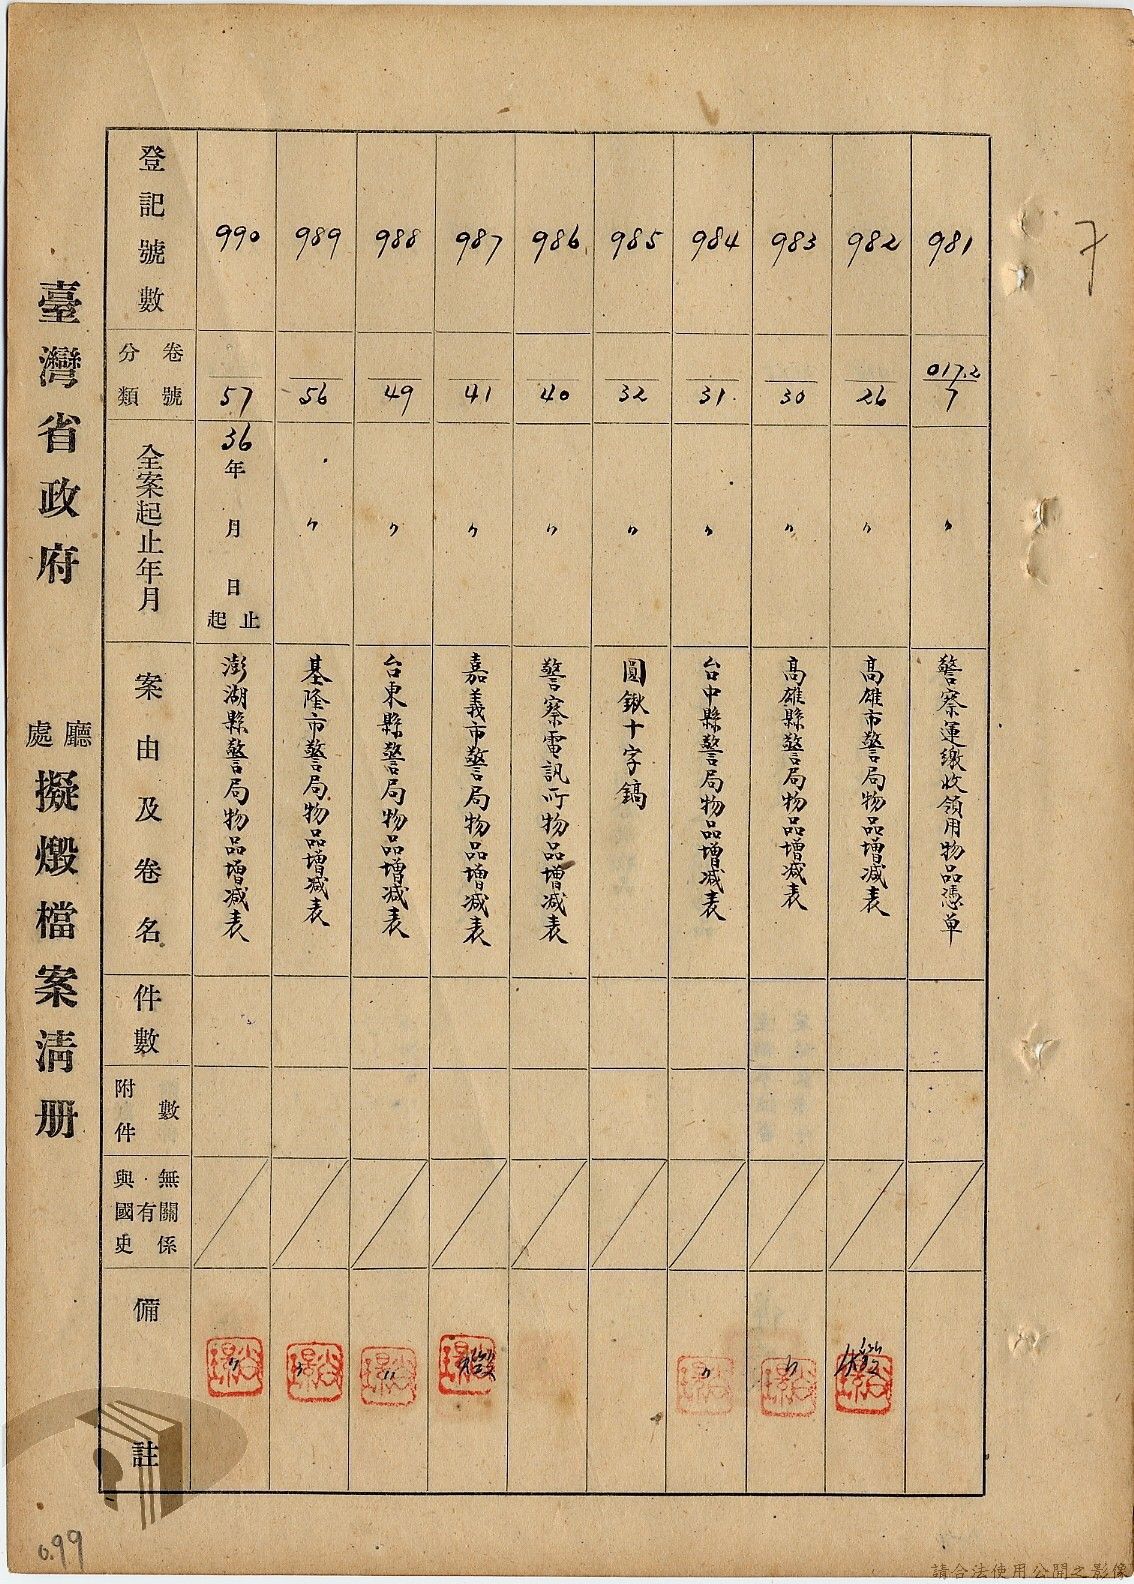 7
981
017.2
7
〃
警察運繳收領用物品憑單
982
26
〃
高雄市警局物品增減表
燬
983
30
〃
高雄縣警局物品增減表
〃
984
31
〃
台中縣警局物品增減表
〃
985
32
〃
圓鍬十字鎬
986
40
〃
警察電訊所物品增減表
987
41
〃
嘉義市警局物品增減表
燬
988
49
〃
台東縣警局物品增減表
〃
989
56
〃
基隆市警局物品增減表
〃
990
57
36年 月 日起止
澎湖縣警局物品增減表
〃
登記號數
卷號
分類
全案起止年月
案由及卷名
件數
附件數
與國史有無關係
備註
臺灣省政府 廳處 擬燬檔案清册
0.99
請合法使用公開之影像